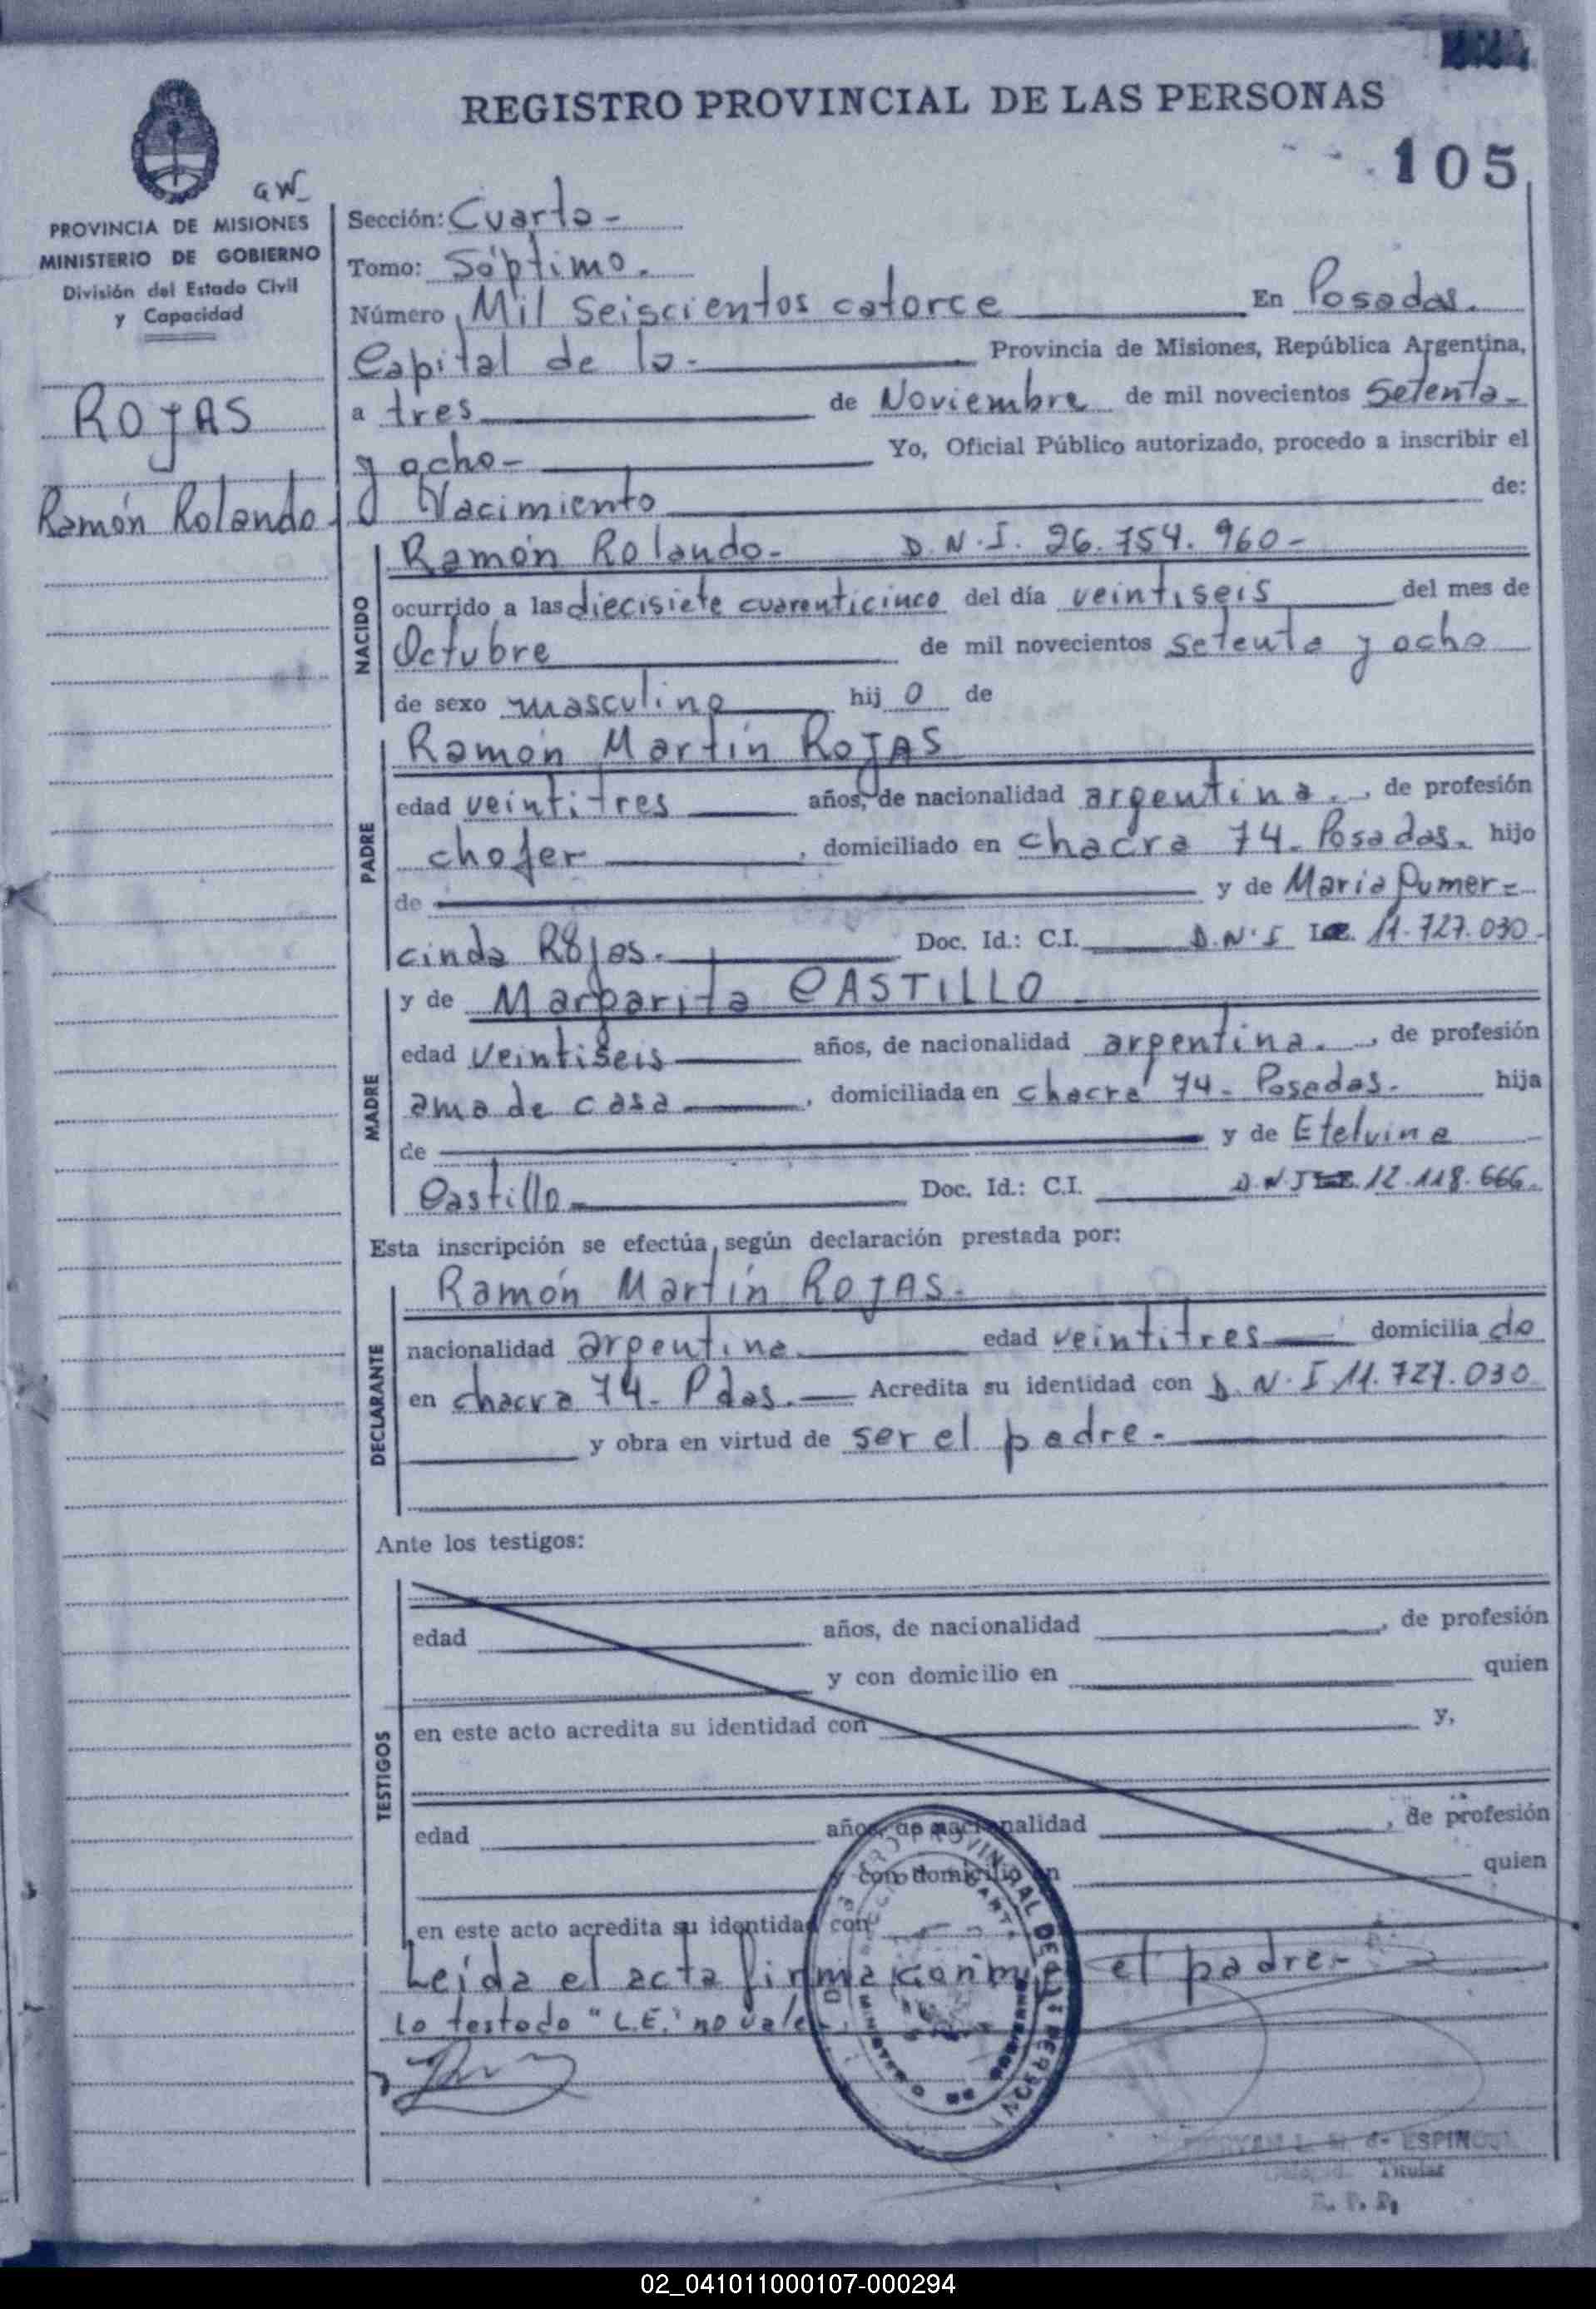 REGISTRO PROVINCIAL DE LAS PERSONAS
105
GW
PROVINCIA DE MISIONES
MINISTERIO DE GOBIERNO
División del Estado Civil
y Capacidad
ROJAS
Ramón Rolando
Sección: Cuarta -
Tomo: Séptimo.
Número Mil seiscientos catorce En Posadas.
Capital de la - Provincia de Misiones, República Argentina,
a tres de Noviembre de mil novecientos setenta -
y ocho - Yo, Oficial Público autorizado, procedo a inscribir el
Nacimiento de:
NACIDO
Ramón Rolando - D.N.I. 26.754.960 -
ocurrido a las diecisiete cuarenticinco del día veintiseis del mes de
Octubre de mil novecientos setenta y ocho
de sexo masculino hij o de
PADRE
Ramón Martín ROJAS
edad veintitres años, de nacionalidad argentina. , de profesión
chofer , domiciliado en chacra 74 - Posadas. hijo
de y de Maria Gumer=
cinda Rojas. Doc. Id.: C.I. D.N.I L.E. 11.727.030 -
MADRE
y de Margarita CASTILLO
edad veintiseis años, de nacionalidad argentina. , de profesión
ama de casa , domiciliada en chacra 74 - Posadas. hija
de y de Etelvina
Castillo Doc. Id.: C.I. D.N.I L.E. 12.118.666.
Esta inscripción se efectúa, según declaración prestada por:
DECLARANTE
Ramón Martín ROJAS.
nacionalidad argentina edad veintitres domicilia do
en chacra 74 - Pdas. Acredita su identidad con D.N.I 11.727.030
y obra en virtud de ser el padre -
Ante los testigos:
TESTIGOS
edad años, de nacionalidad , de profesión
y con domicilio en quien
en este acto acredita su identidad con y,
edad años, de nacionalidad , de profesión
con domicilio en quien
en este acto acredita su identidad con
Leída el acta firma conmigo el padre -
Lo testado "L.E." no vale -
ESPINOSA
Titular
R. P. P.
02_041011000107-000294